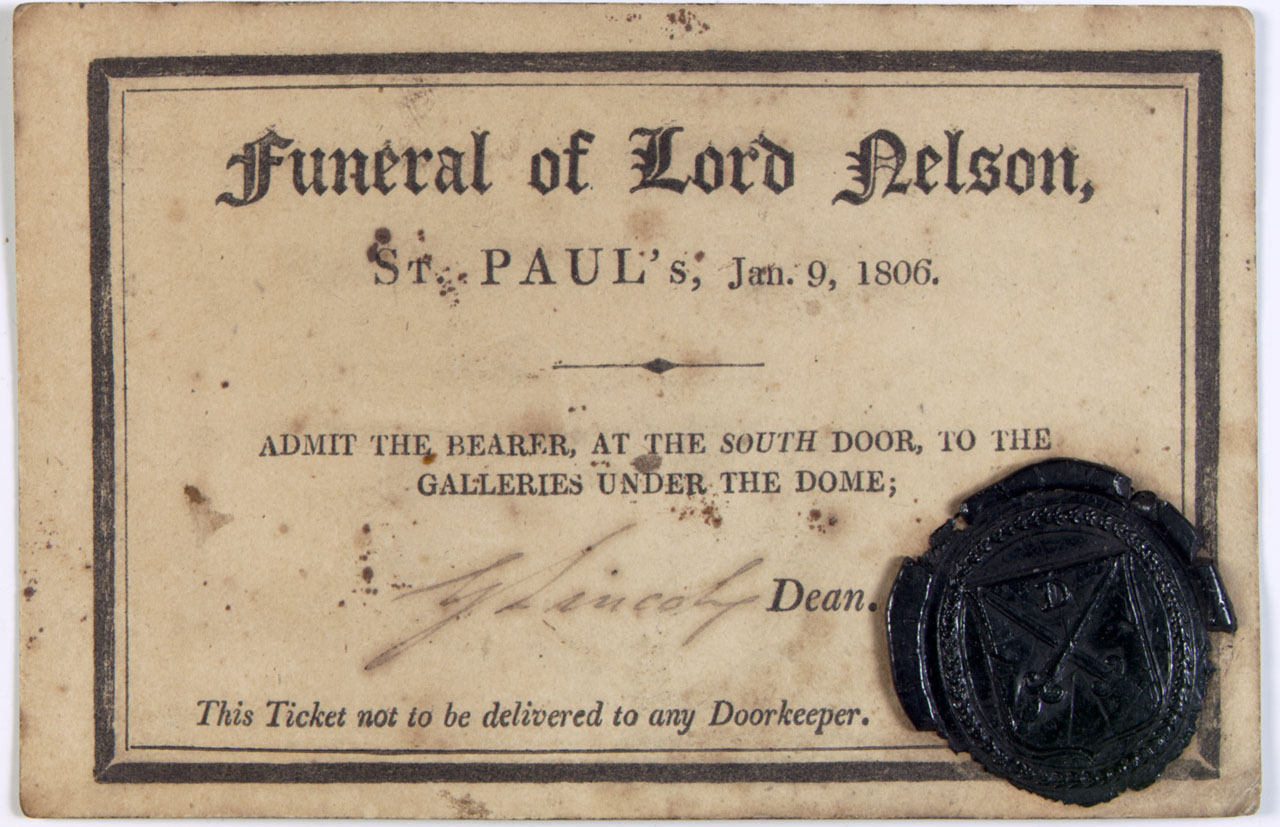 Funeral of Lord Nelson,
St. PAUL's, Jan. 9, 1806.
ADMIT THE BEARER, AT THE SOUTH DOOR, TO THE
GALLERIES UNDER THE DOME;
G Lincoln Dean.
This Ticket not to be delivered to any Doorkeeper.
D